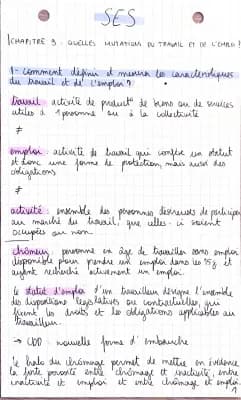 SES
CHAPITRE 9 : QUELLES MUTATIONS DU TRAVAIL ET DE L'EMPLOI ?
1 - Comment définir et mesurer les caractéristiques
du travail et de l'emploi ?
travail : activité de product° de biens ou de services
utiles à 1 personne ou à la collectivité
≠
emploi : activité de travail qui confère un statut
et donc une forme de protection, mais aussi des
obligations
≠
activité : ensemble des personnes désireuses de participer
au marché du travail, que celles-ci soient
occupées ou non.
chômeur : personne en âge de travailler sans emploi
disponible pour prendre un emploi dans les 15j et
ayant recherché activement un emploi.
Le statut d'emploi d'un travailleur désigne l'ensemble
des dispositions législatives ou contractuelles, qui
fixent les droits et les obligations applicables au
travailleur.
→ CDD : nouvelle forme d'embauche
le halo du chômage permet de mettre en évidence
la forte porosité entre chômage et inactivité, entre
inactivité et emploi et entre chômage et emploi
1